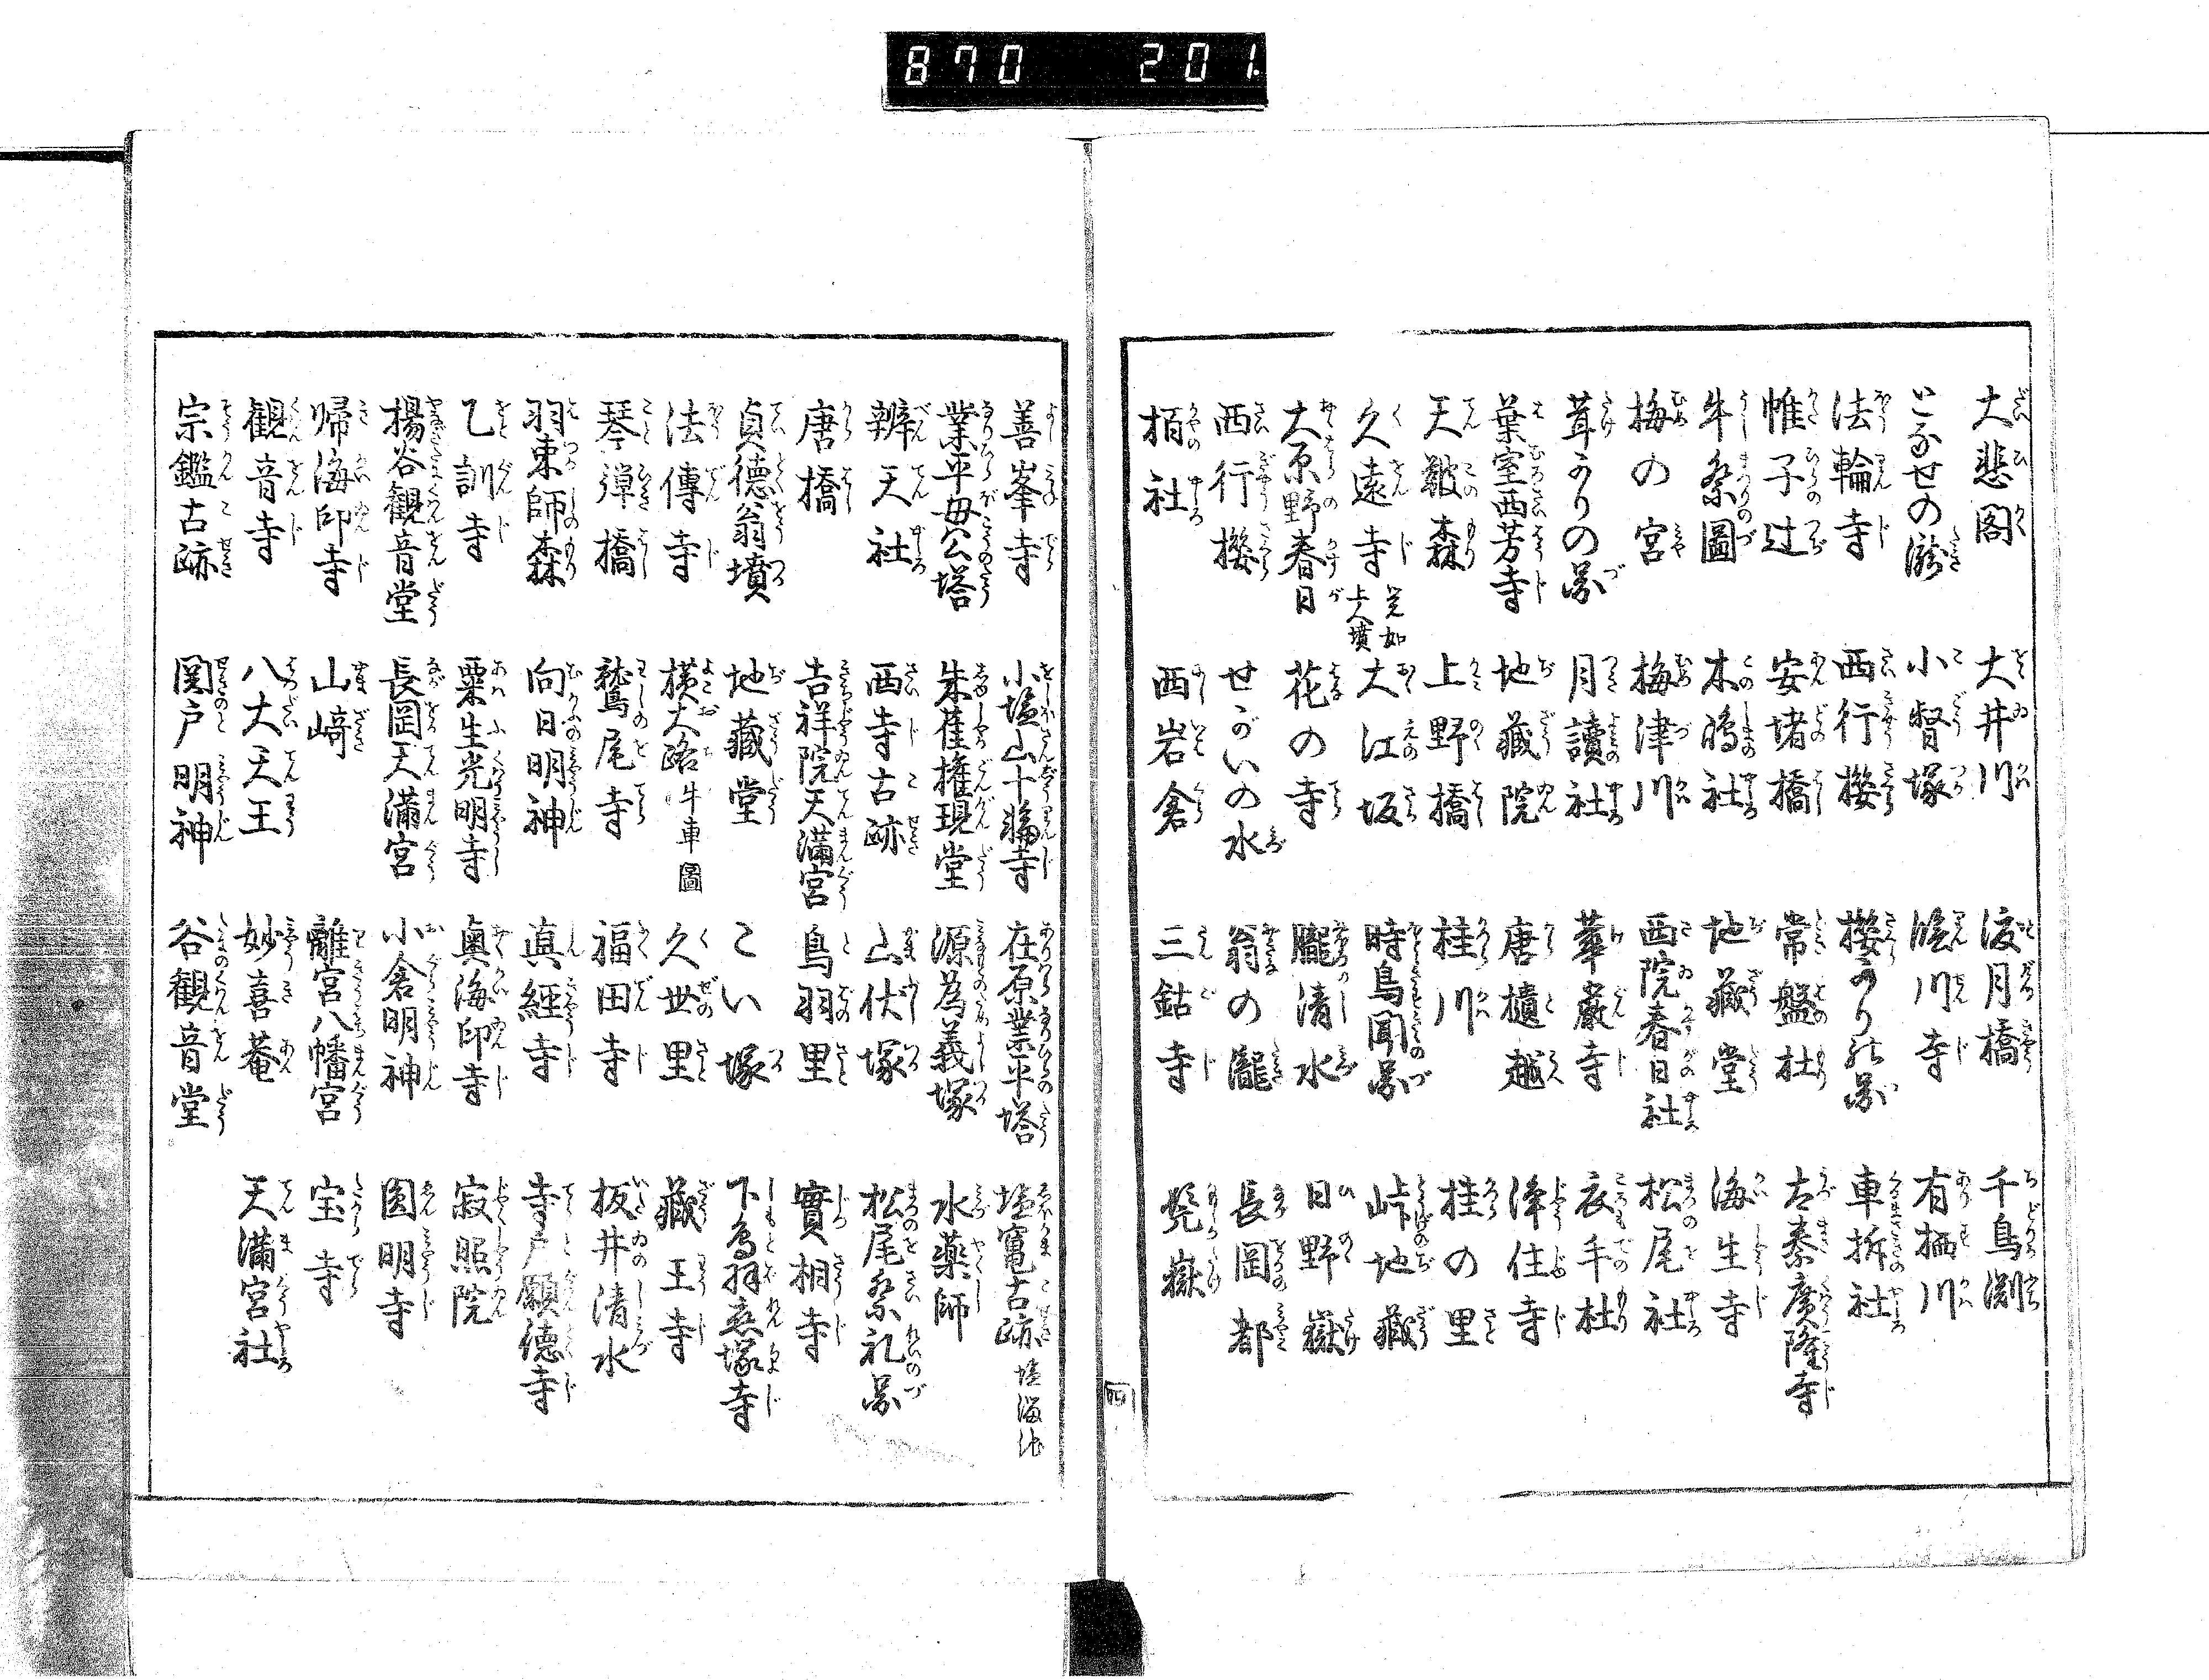 870 201
大悲閣 大井川 渡月橋 千鳥淵
となせの滝 小督塚 臨川寺 有栖川
法輪寺 西行桜 桜かりの图 車折社
帷子辻 安堵橋 常盤杜 太秦廣隆寺
牛祭圖 木嶋社 地藏堂 海生寺
梅の宮 梅津川 西院春日社 松尾社
茸かりの图 月讀社 華嚴寺 衣手杜
葉室西芳寺 地藏院 唐櫃越 浄住寺
天皷森 上野橋 桂川 桂の里
久遠寺 覚如上人墳 大江坂 時鳥聞图 峠地藏
大原野春日 花の寺 朧清水 日野嶽
西行桜 せがいの水 翁の瀧 長岡都
栢社 西岩倉 三鈷寺 兀嶽
四
善峯寺 小塩山十輪寺 在原業平塔 塩竃古跡 塩溜池
業平母公塔 朱雀権現堂 源為義塚 水薬師
辨天社 西寺古跡 山伏塚 松尾祭礼图
唐橋 吉祥院天滿宮 鳥羽里 實相寺
貞徳翁墳 地藏堂 こい塚 下鳥羽恋塚寺
法傳寺 横大路 牛車圖 久世里 藏王寺
琴弾橋 鷲尾寺 福田寺 板井清水
羽束師森 向日明神 真経寺 寺戸願徳寺
乙訓寺 粟生光明寺 奥海印寺 寂照院
揚谷觀音堂 長岡天滿宮 小倉明神 圓明寺
帰海印寺 山崎 離宮八幡宮 宝寺
観音寺 八大天王 妙喜菴 天滿宮社
宗鑑古跡 関戸明神 谷観音堂